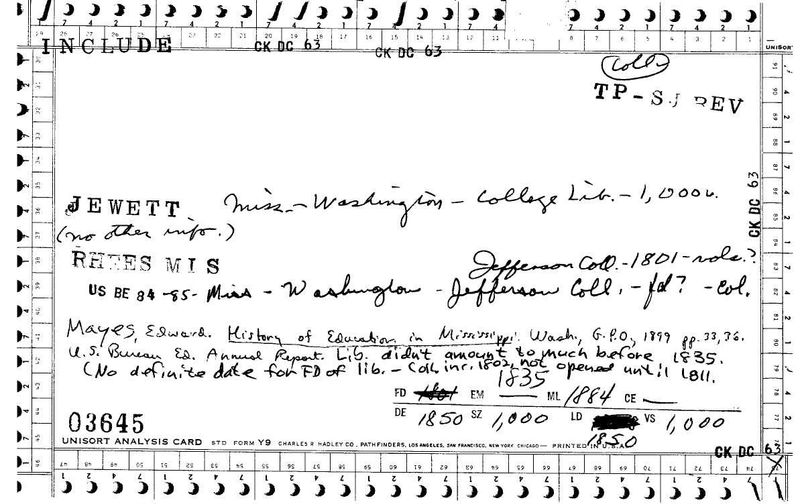 INCLUDE
CK DC 63
CK DC 63
UNISORT
Coll
TP - SJ REV
CK DC 63
JEWETT Miss. - Washington - College Lib. - 1,000v.
(no other info.)
RHEES MIS Jefferson Coll. - 1801 - vols.?
US BE 84-85 - Miss - Washington - Jefferson Coll. - fd? - col.
Mayes, Edward. History of Education in Mississippi. Wash., G.P.O., 1899 pp. 33, 36.
U.S. Bureau Ed. Annual Report. Lib. didn't amount to much before 1835.
(No definite date for FD of lib. - Coll. inc. 1802, not opened until 1811.
1835
FD 1801 EM — ML 1884 CE —
DE 1850 SZ 1,000 LD VS 1,000
1850
03645
UNISORT ANALYSIS CARD STD FORM Y9 CHARLES R HADLEY CO., PATHFINDERS, LOS ANGELES, SAN FRANCISCO, NEW YORK CHICAGO — PRINTED IN U.S.A.
CK DC 63